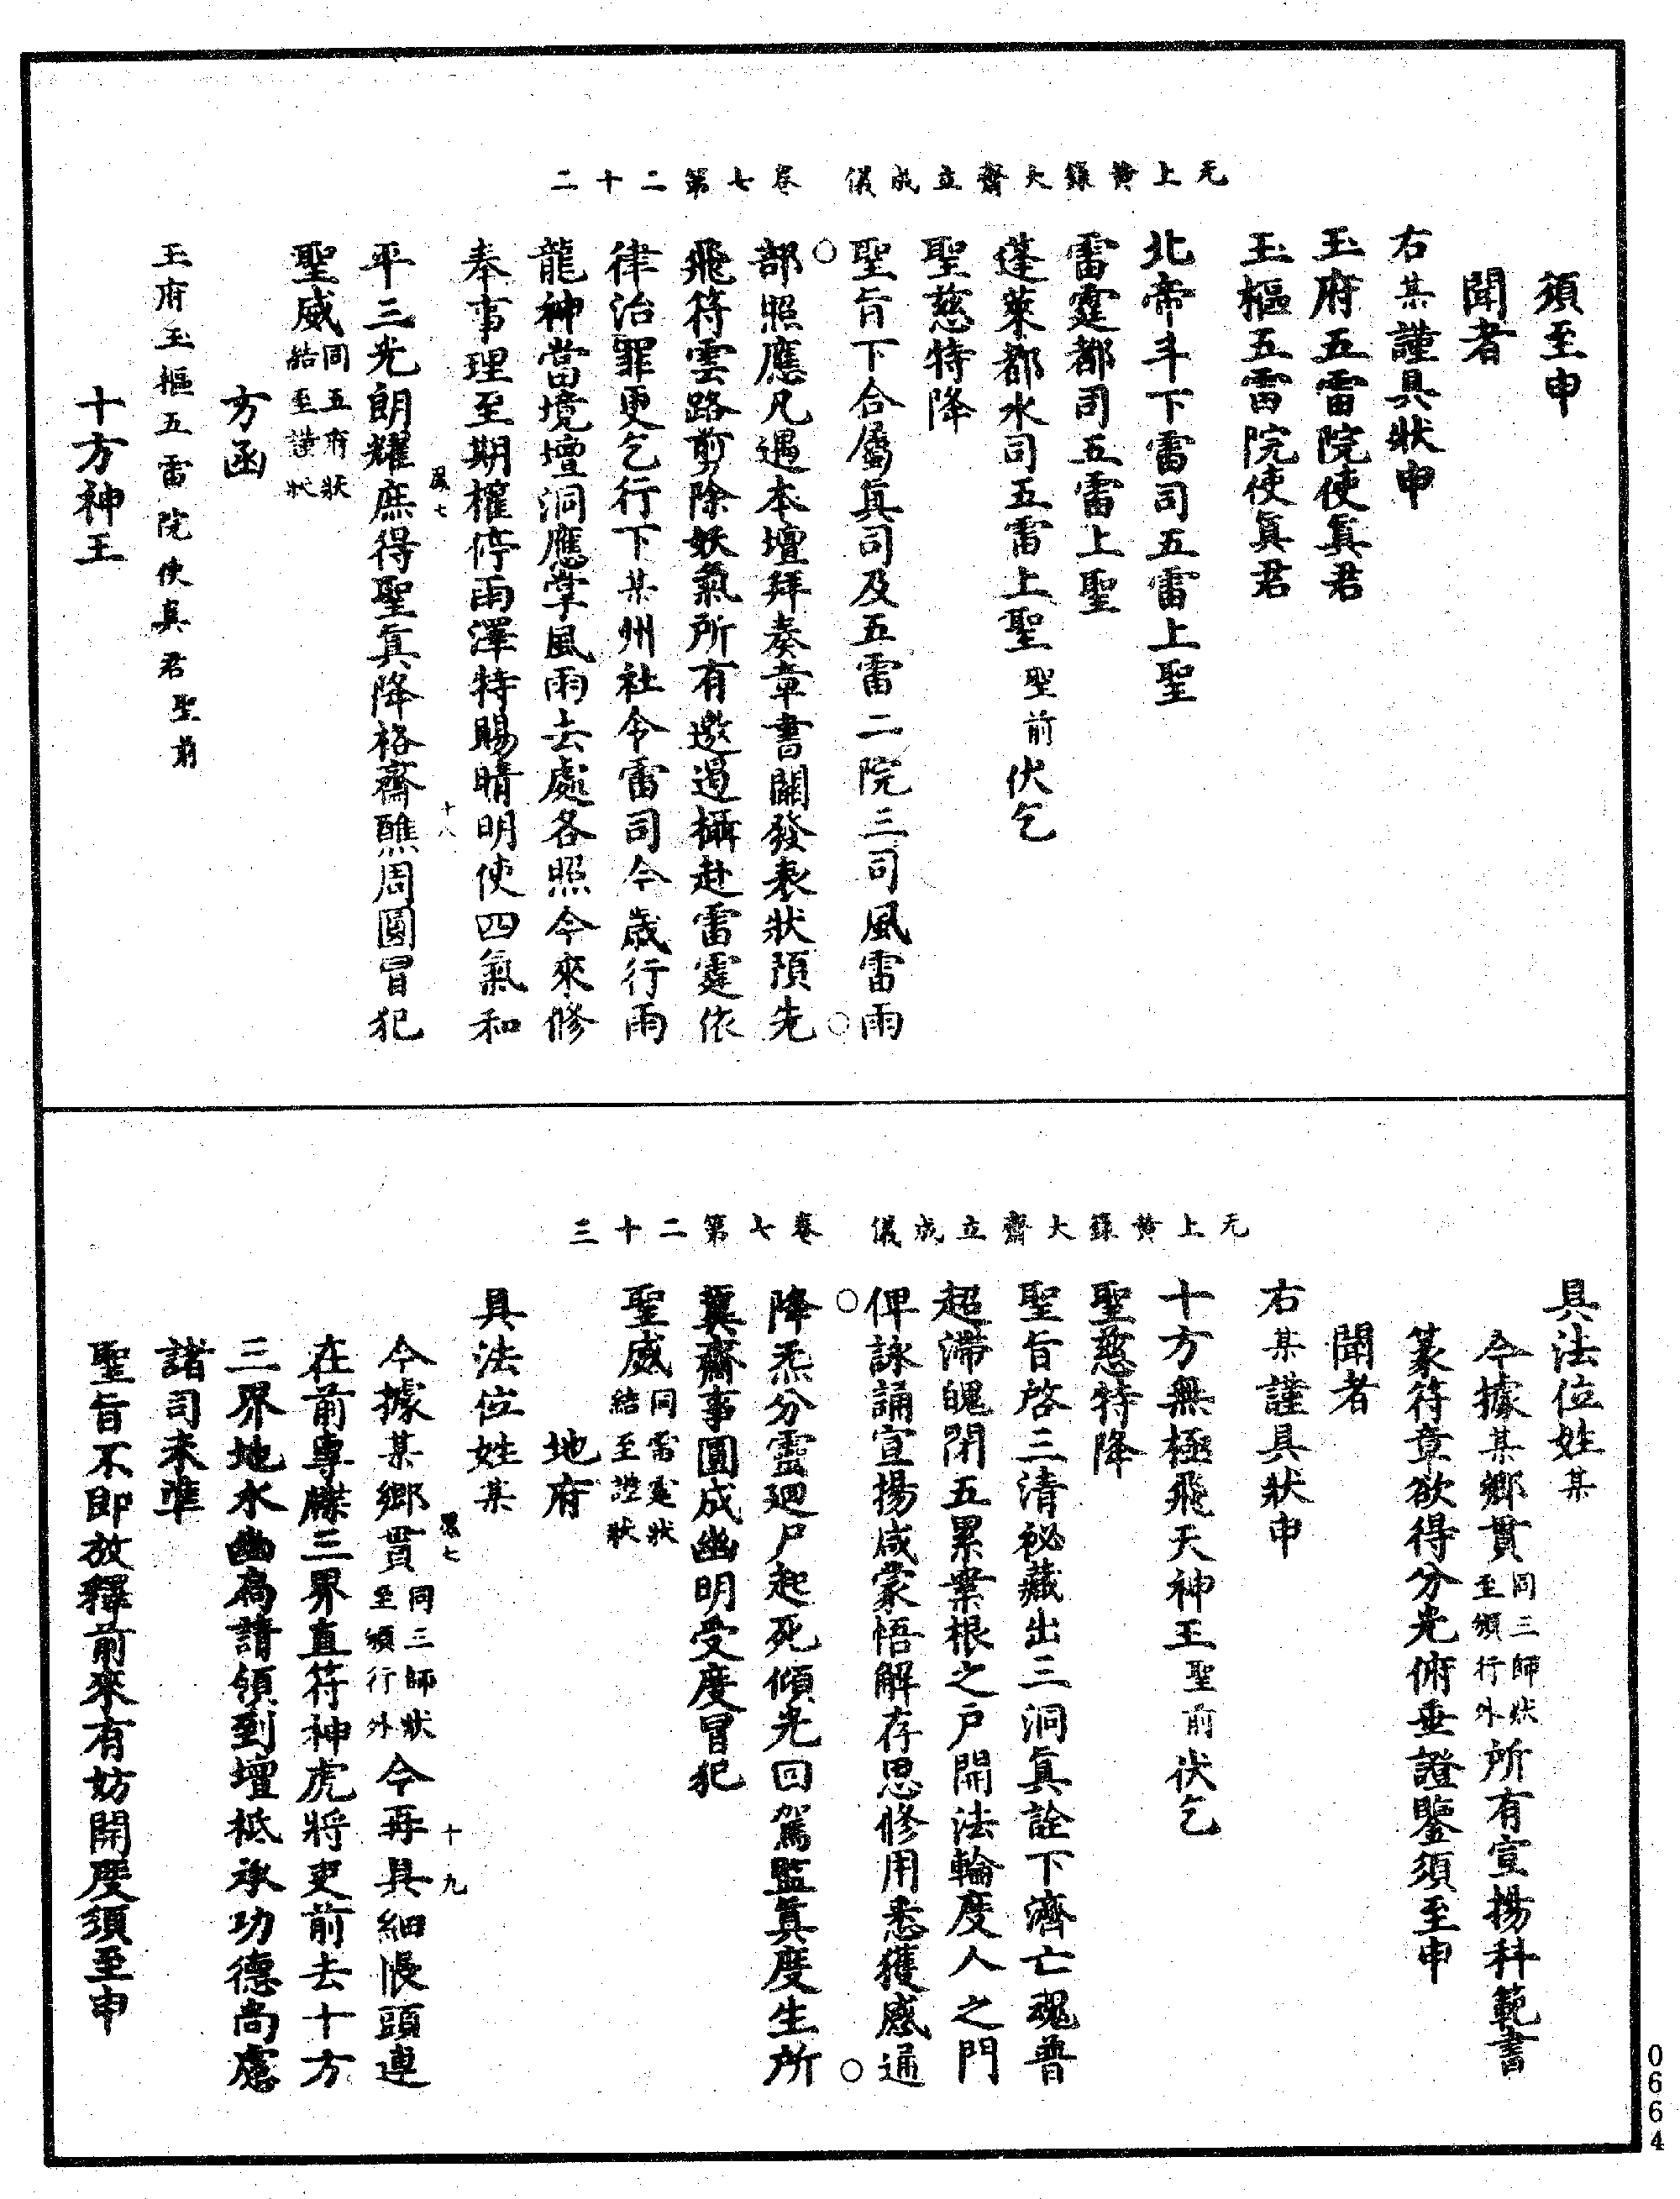 无上黄籙大齋立成儀　卷七第二十二
須至申
聞者
右某謹具狀申
玉府五雷院使眞君
玉樞五雷院使眞君
北帝斗下雷司五雷上聖
雷霆都司五雷上聖
蓬萊都水司五雷上聖聖前伏乞
聖慈特降
聖旨下合屬眞司及五雷二院三司風雷雨
部照應凡遇本壇拜奏章書關發表狀預先
飛符雲路剪除妖氣所有邀遏攝赴雷霆依
律治罪更乞行下某州社令雷司今歲行雨
龍神當境壇洞應掌風雨去處各照今來修
奉事理至期權停雨澤特賜晴明使四氣和
平三光朗耀庶得聖眞降格齋醮周圓冒犯
聖威同五府狀結至謹狀
方函
玉府玉樞五雷院使眞君聖前
十方神王
十八
无上黄籙大齋立成儀　卷七第二十三
具法位姓某
今據某鄉貫同三師狀至頒行外所有宣揚科範書
篆符章欲得分光俯垂證鑒須至申
聞者
右某謹具狀申
十方無極飛天神王聖前伏乞
聖慈特降
聖旨啓三清祕藏出三洞眞詮下濟亡魂普
超滯魄閉五累案根之戶開法輪度人之門
俾詠誦宣揚咸蒙悟解存思修用悉獲感通
降炁分靈廻尸起死傾光回駕監眞度生所
冀齋事圓成幽明受度冒犯
聖威同雷霆狀結至謹狀
地府
具法位姓某
今據某鄉貫同三師狀至頒行外今再具細帳頭連
十九
在前專牒三界直符神虎將吏前去十方
三界地水幽扃請領到壇祗承功德尚慮
諸司未準
聖旨不即放釋前來有妨開度須至申
0664